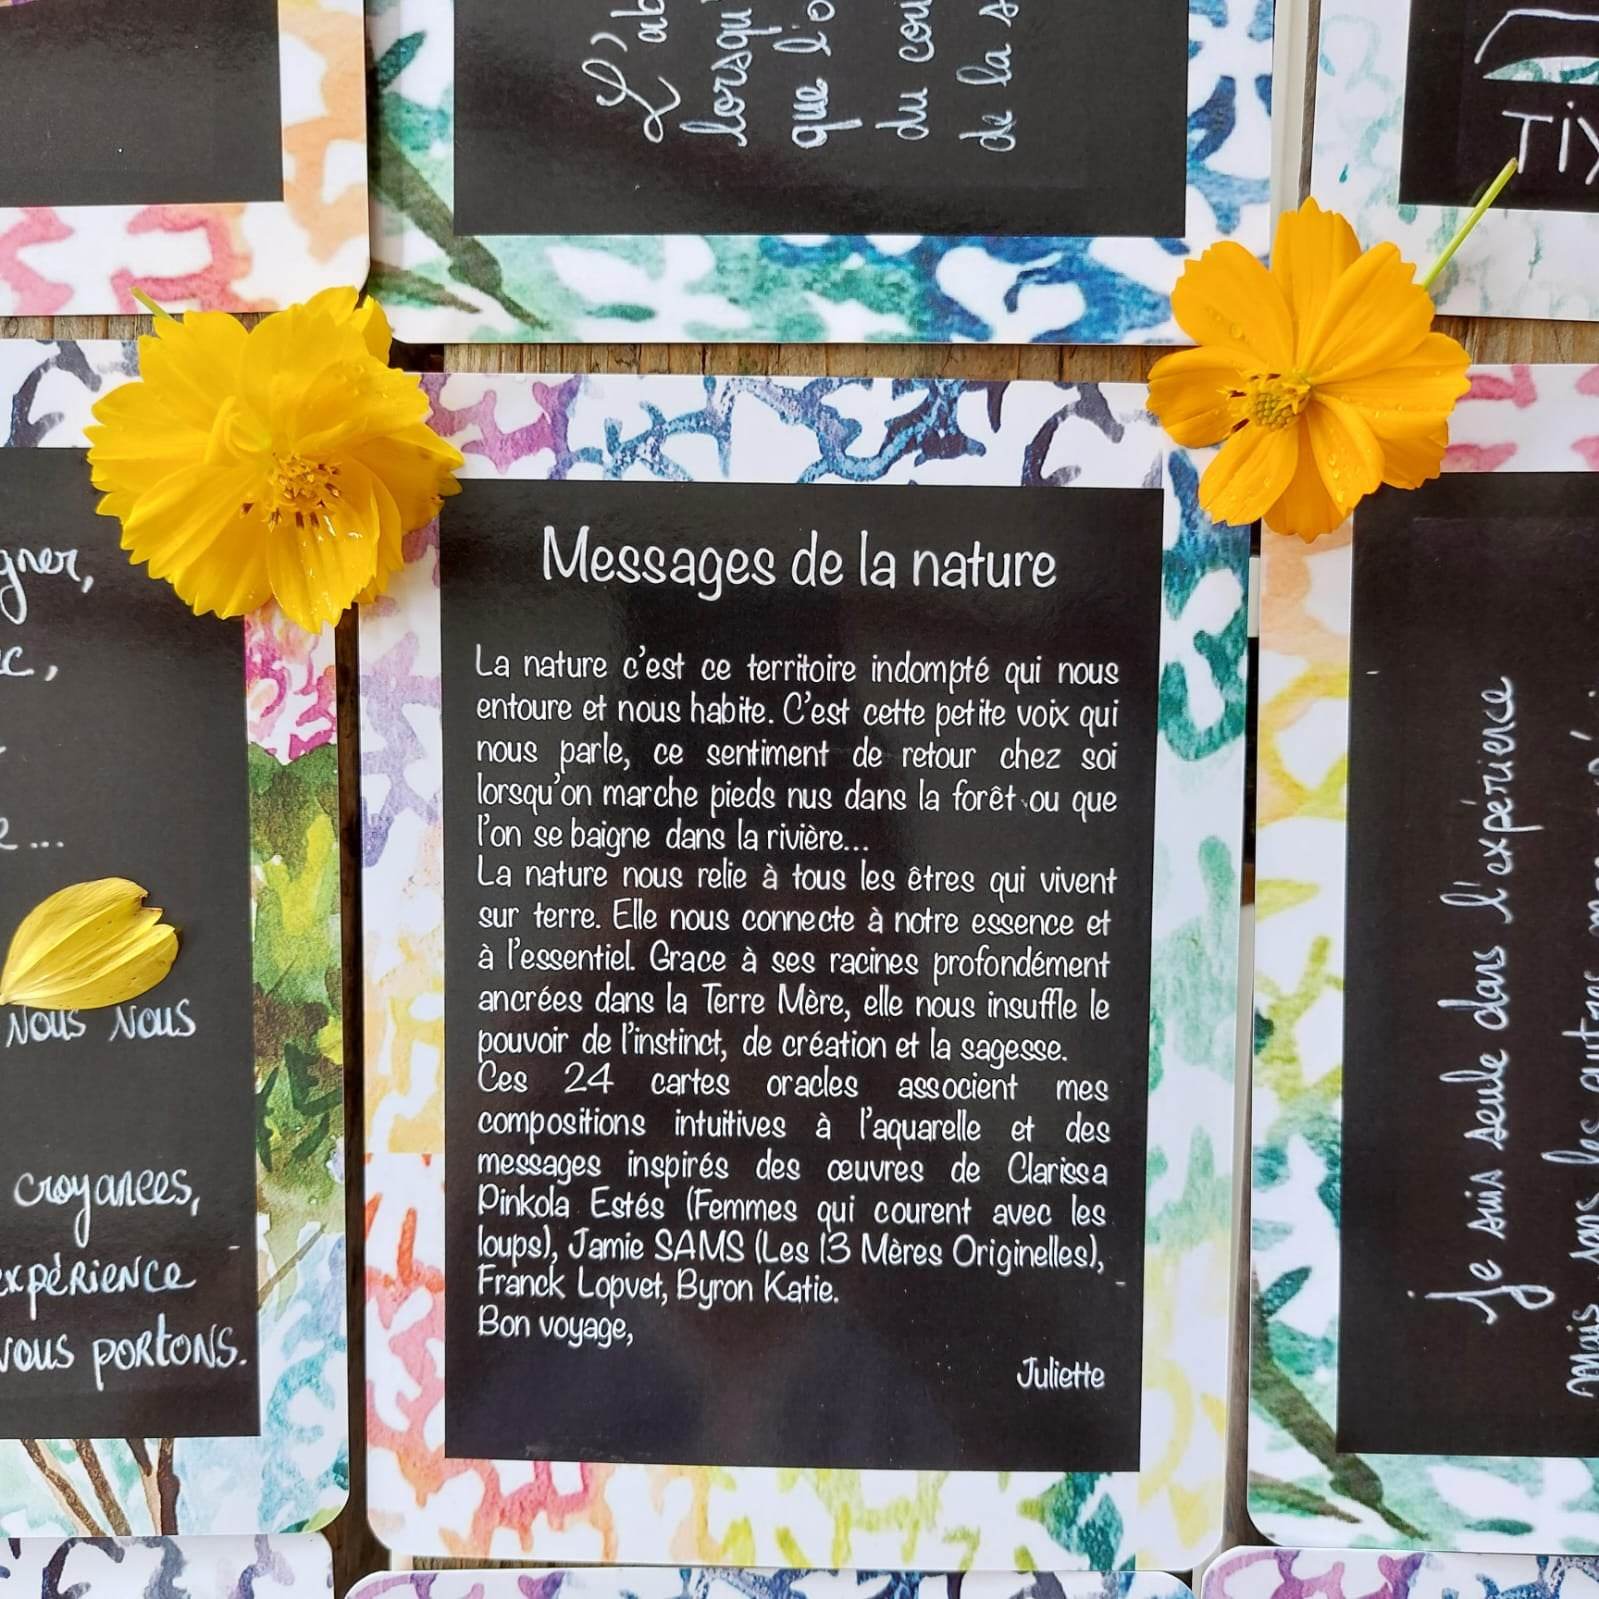 L'
lorsqu'
que l'o
du cou
de la s
gner,
Nous Nous
croyances,
expérience
nous portons.
Messages de la nature
La nature c'est ce territoire indompté qui nous
entoure et nous habite. C'est cette petite voix qui
nous parle, ce sentiment de retour chez soi
lorsqu'on marche pieds nus dans la forêt ou que
l'on se baigne dans la rivière...
La nature nous relie à tous les êtres qui vivent
sur terre. Elle nous connecte à notre essence et
à l'essentiel. Grace à ses racines profondément
ancrées dans la Terre Mère, elle nous insuffle le
pouvoir de l'instinct, de création et la sagesse.
Ces 24 cartes oracles associent mes
compositions intuitives à l'aquarelle et des
messages inspirés des œuvres de Clarissa
Pinkola Estés (Femmes qui courent avec les
loups), Jamie SAMS (Les 13 Mères Originelles),
Franck Lopvet, Byron Katie.
Bon voyage,
Juliette
Je suis seule dans l'expérience
mais sans les autres